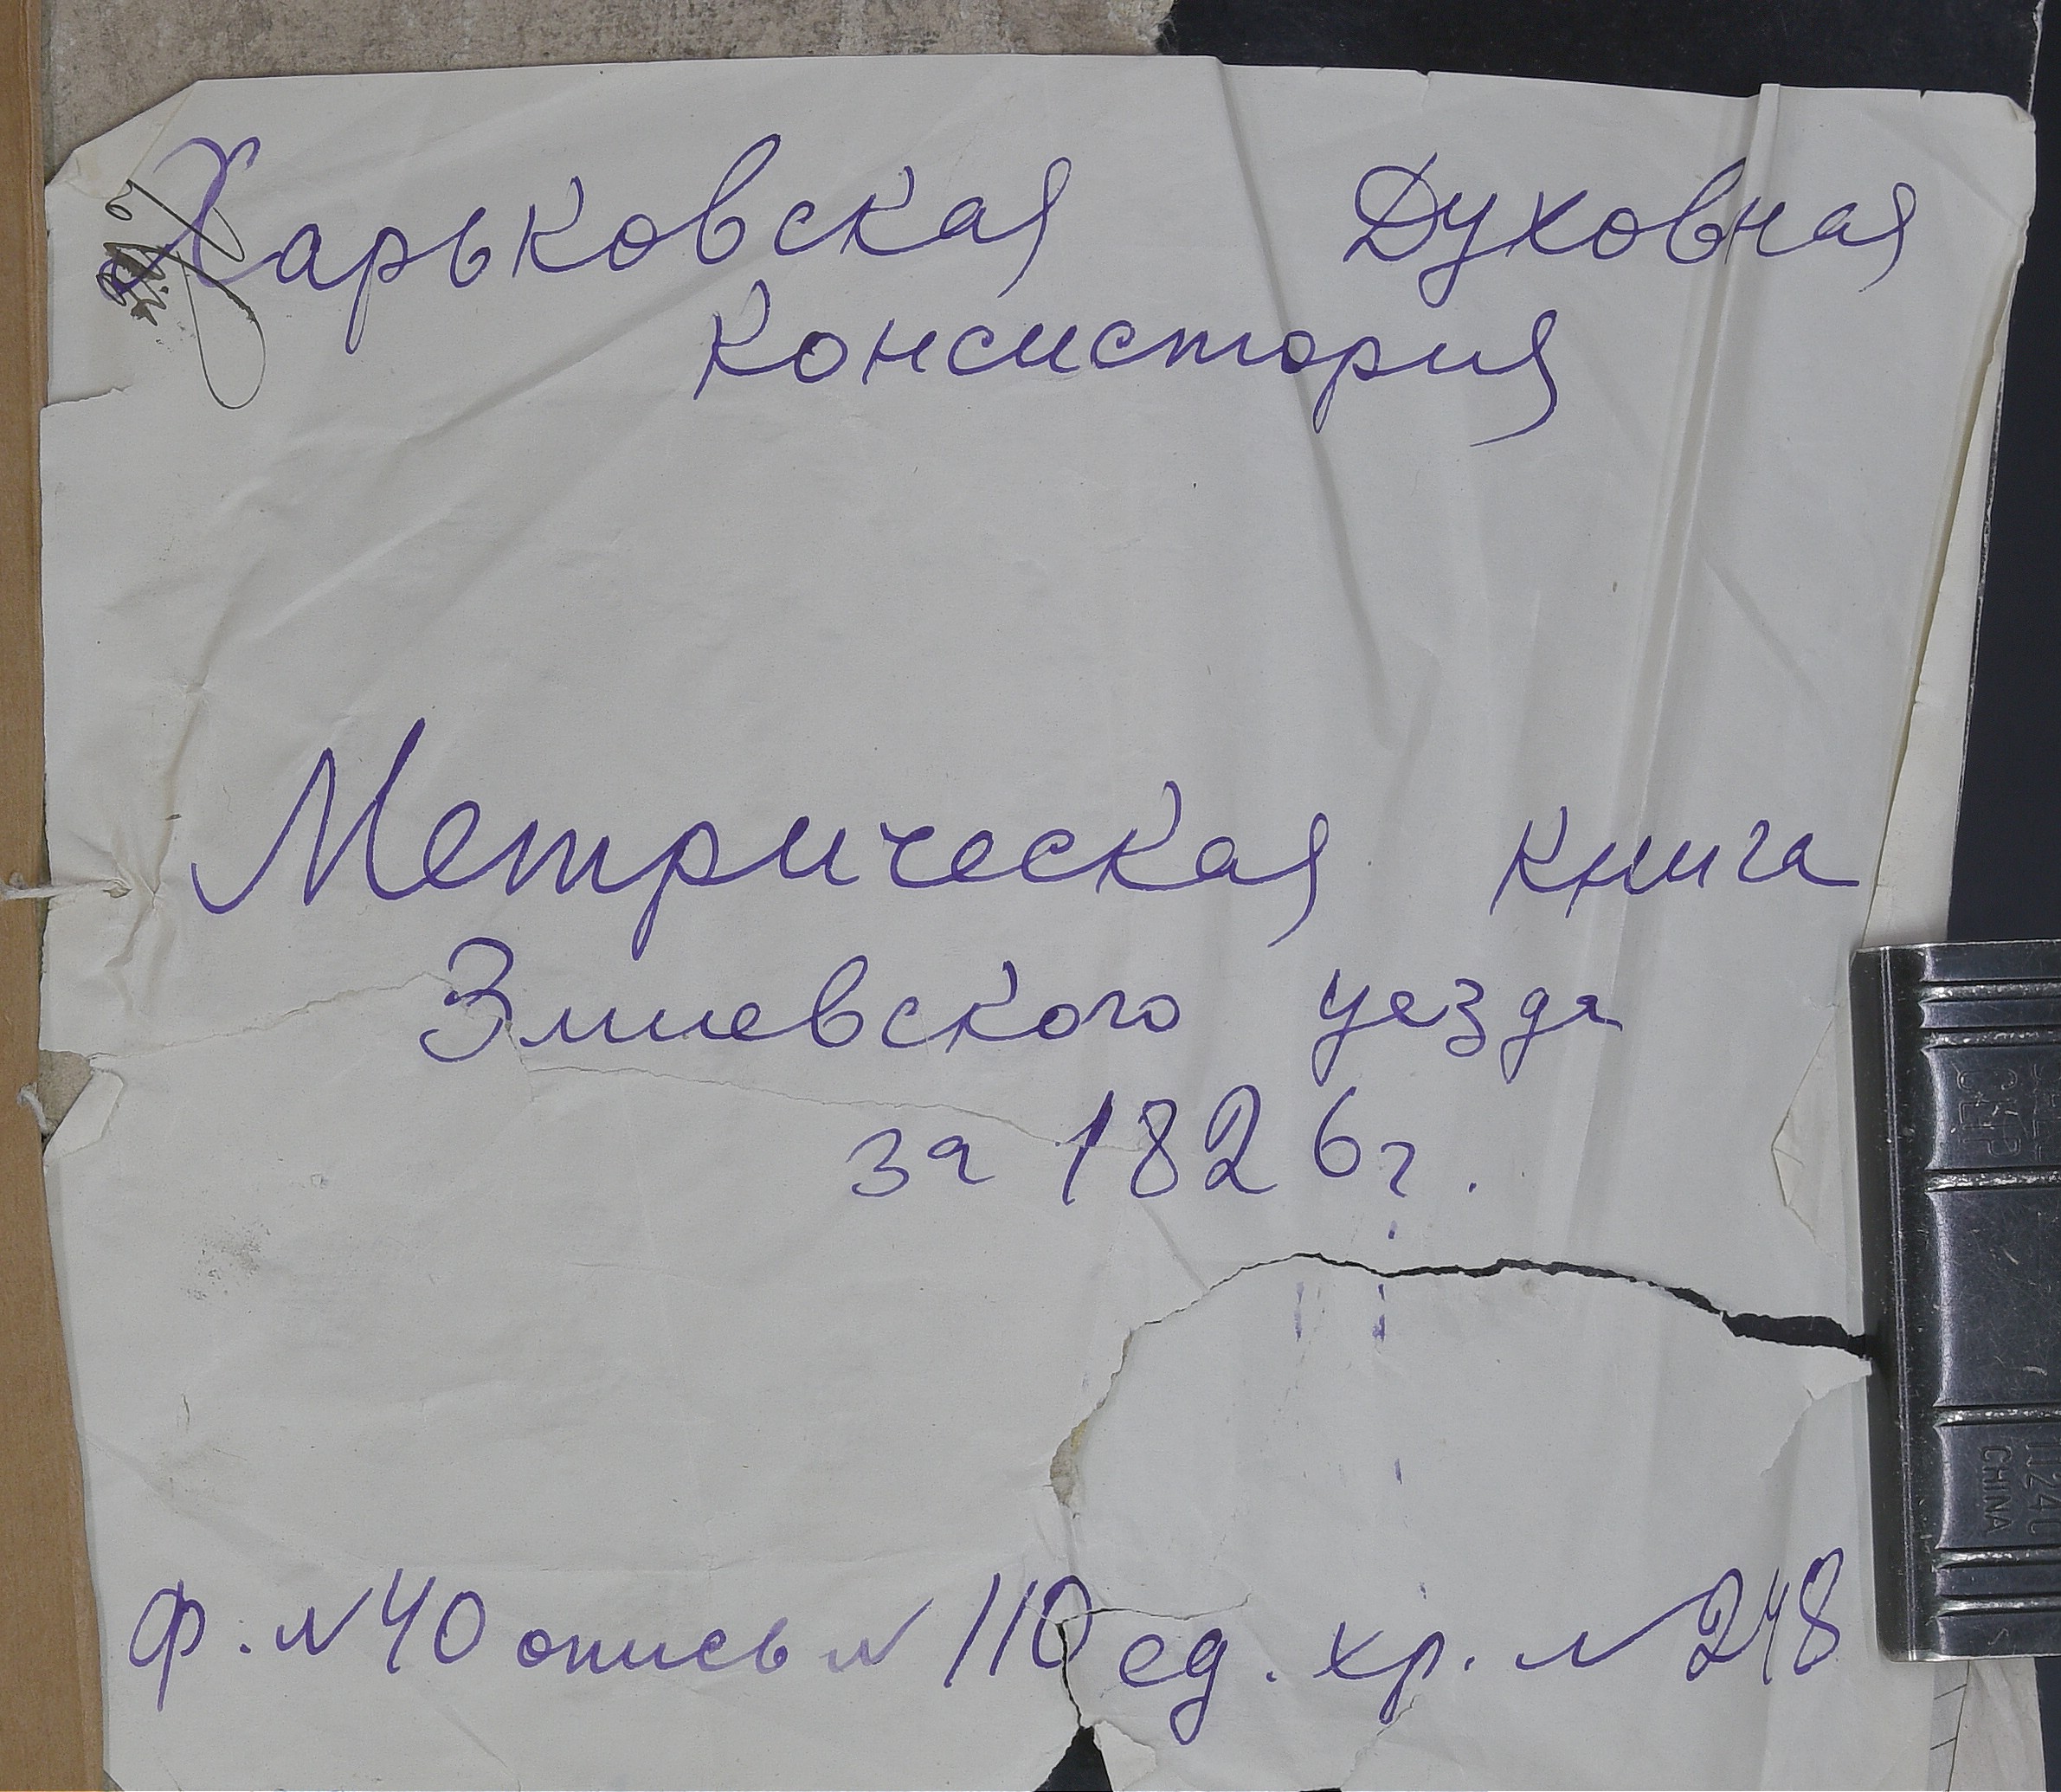 Харьковская Духовная
Консистория
Метрическая книга
Змиевского уезда
за 1826г.
Ф. N 40 опись N 110 ед. хр. N 248
CHINA